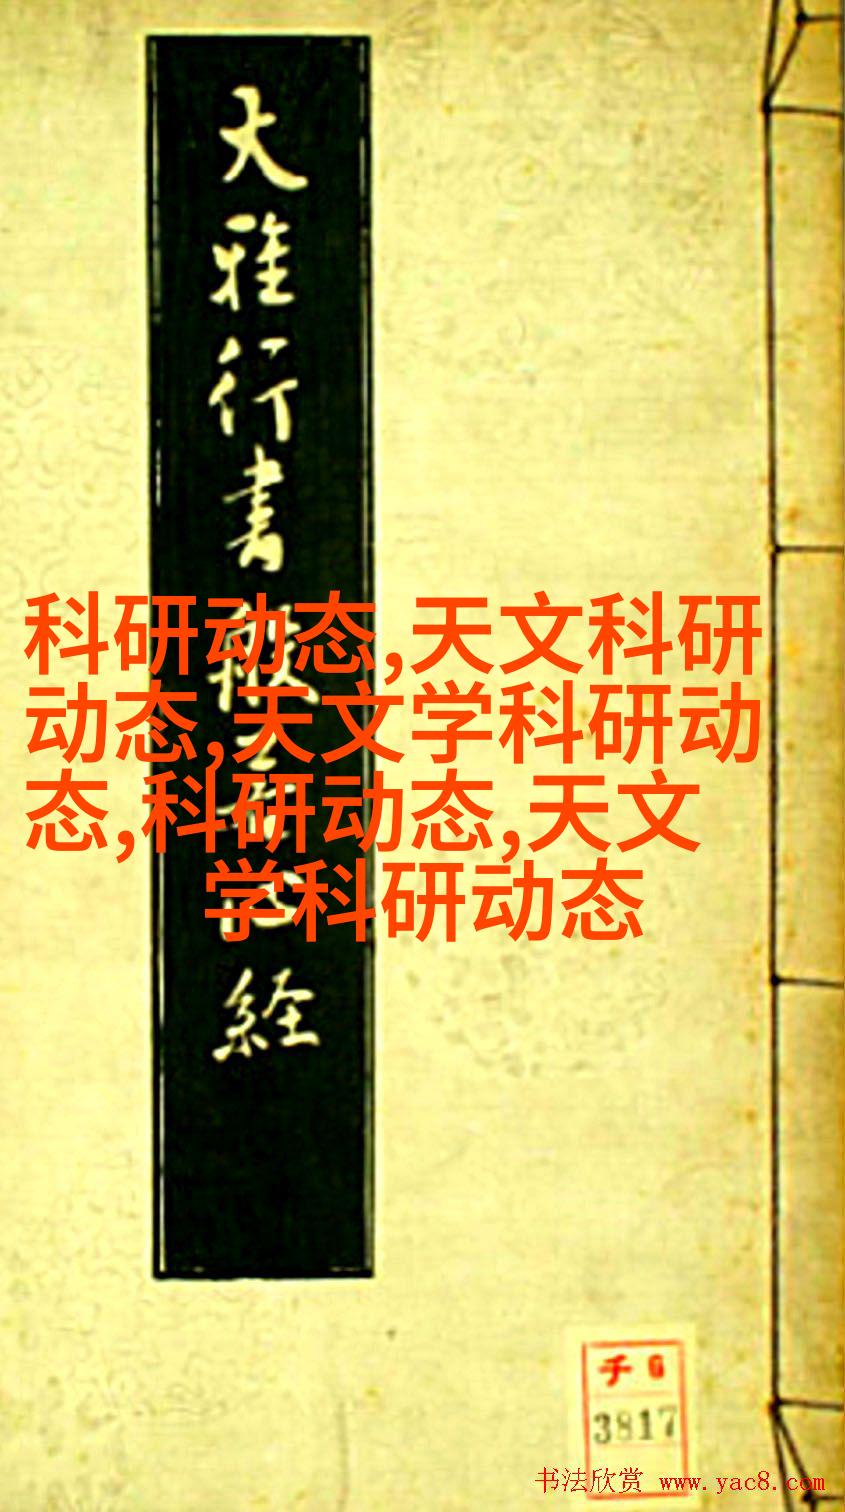 大雅行書般若心经
科研动态,天文科研
动态,天文学科研动
态,科研动态,天文
学科研动态
チ6
3817
书法欣赏 www.yac8.com